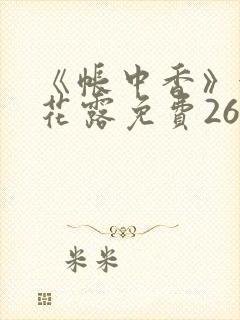 《帐中香》
花露免費26
米米